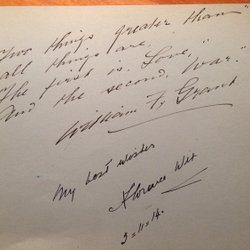 "Two things greater than
all things are,
The first is Love,"
And the second, War."
William F. Grant
My best wishes
Florence
3-11-14.